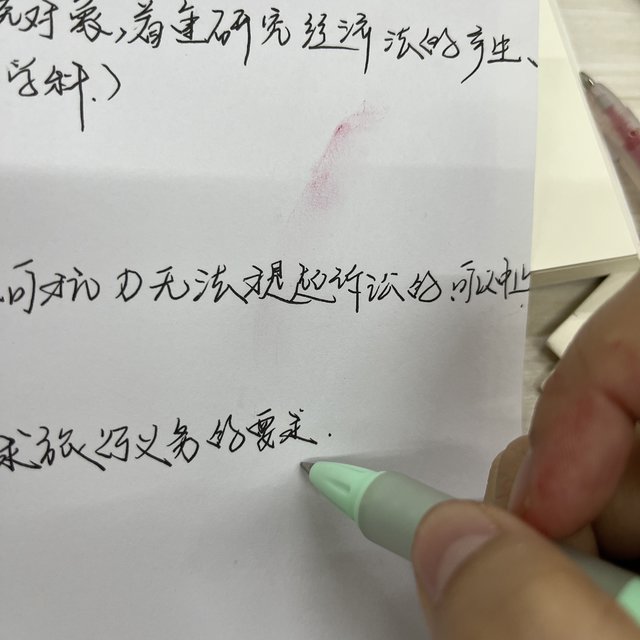 究对象,着重研究经济法的产生、
学科.)
可抗力无法提起诉讼的,可以中止
求旅行义务的要求.